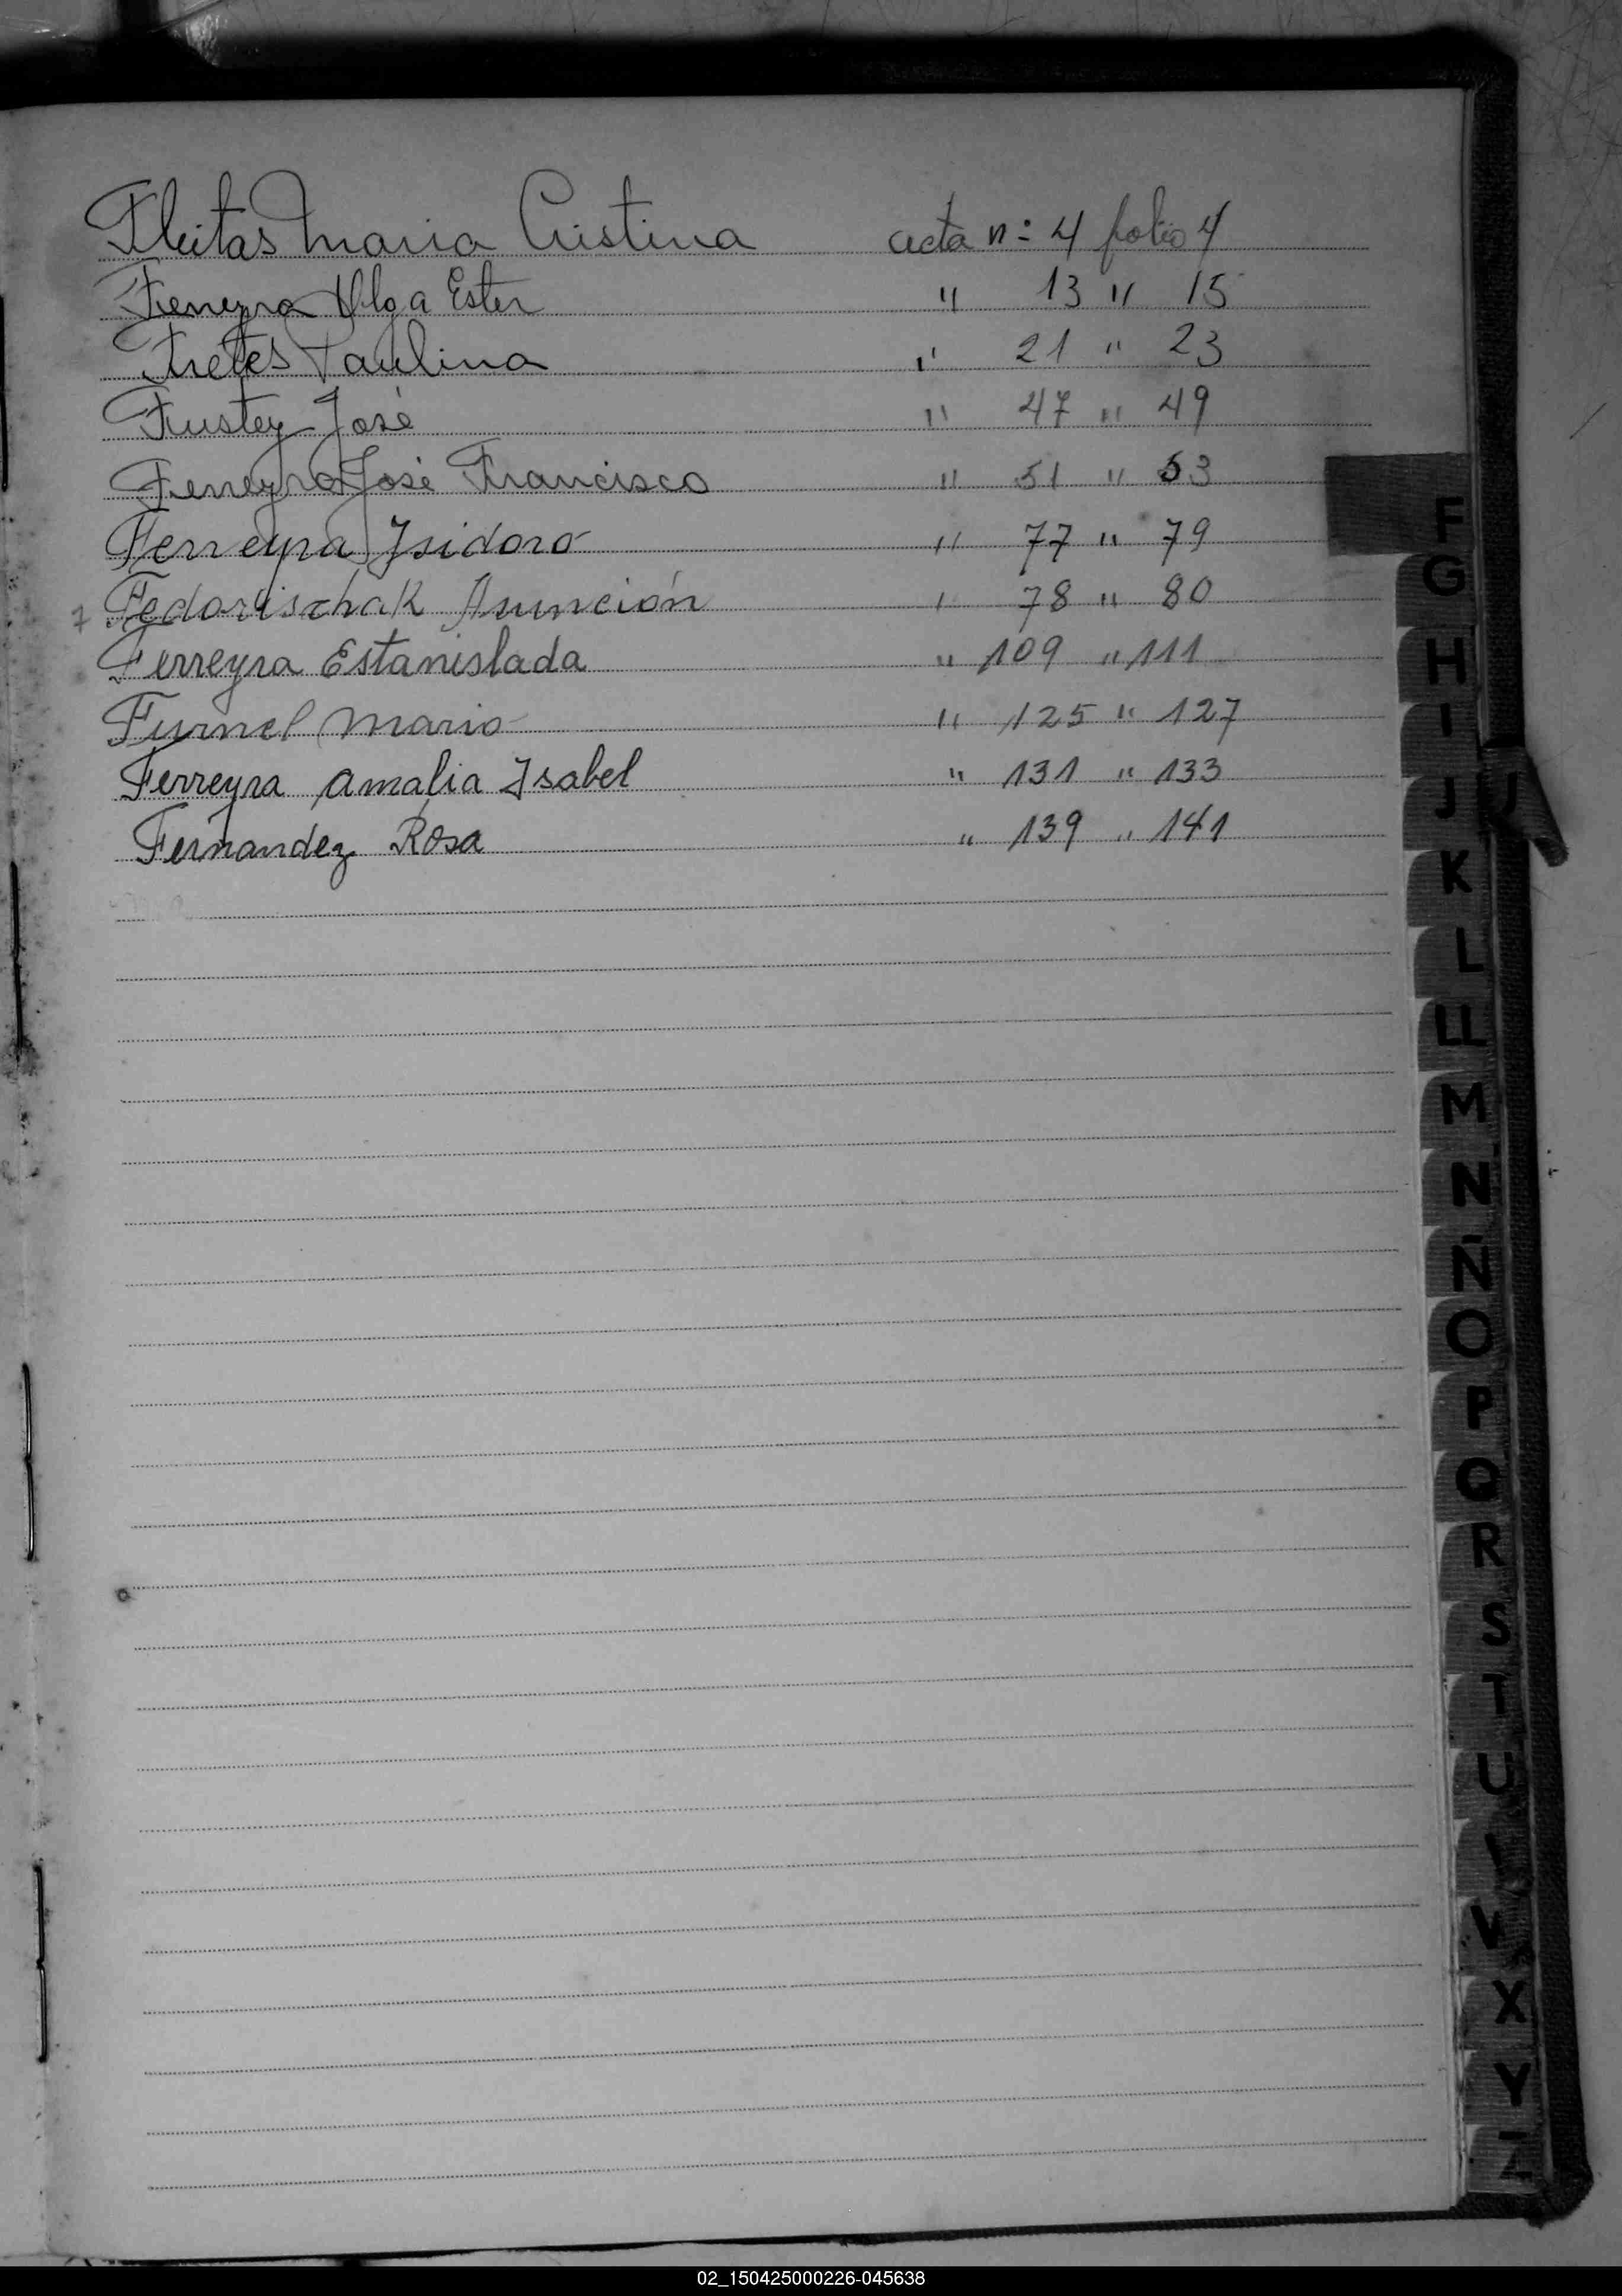 Fleitas Maria Cristina acta n: 4 folio 4
Ferreyra Olga Ester " 13 " 15
Fretes Paulina " 21 " 23
Frustey José " 47 " 49
Ferreyra José Francisco " 51 " 53
Ferreyra Isidoro " 77 " 79
7 Fedorischak Asunción " 78 " 80
Ferreyra Estanislada " 109 " 111
Furnel Mario " 125 " 127
Ferreyra Amalia Isabel " 131 " 133
Fernandez Rosa " 139 " 141
F
G
H
I
J
K
L
LL
M
N
Ñ
O
P
Q
R
S
T
U
V
X
Y
Z
02_150425000226-045638